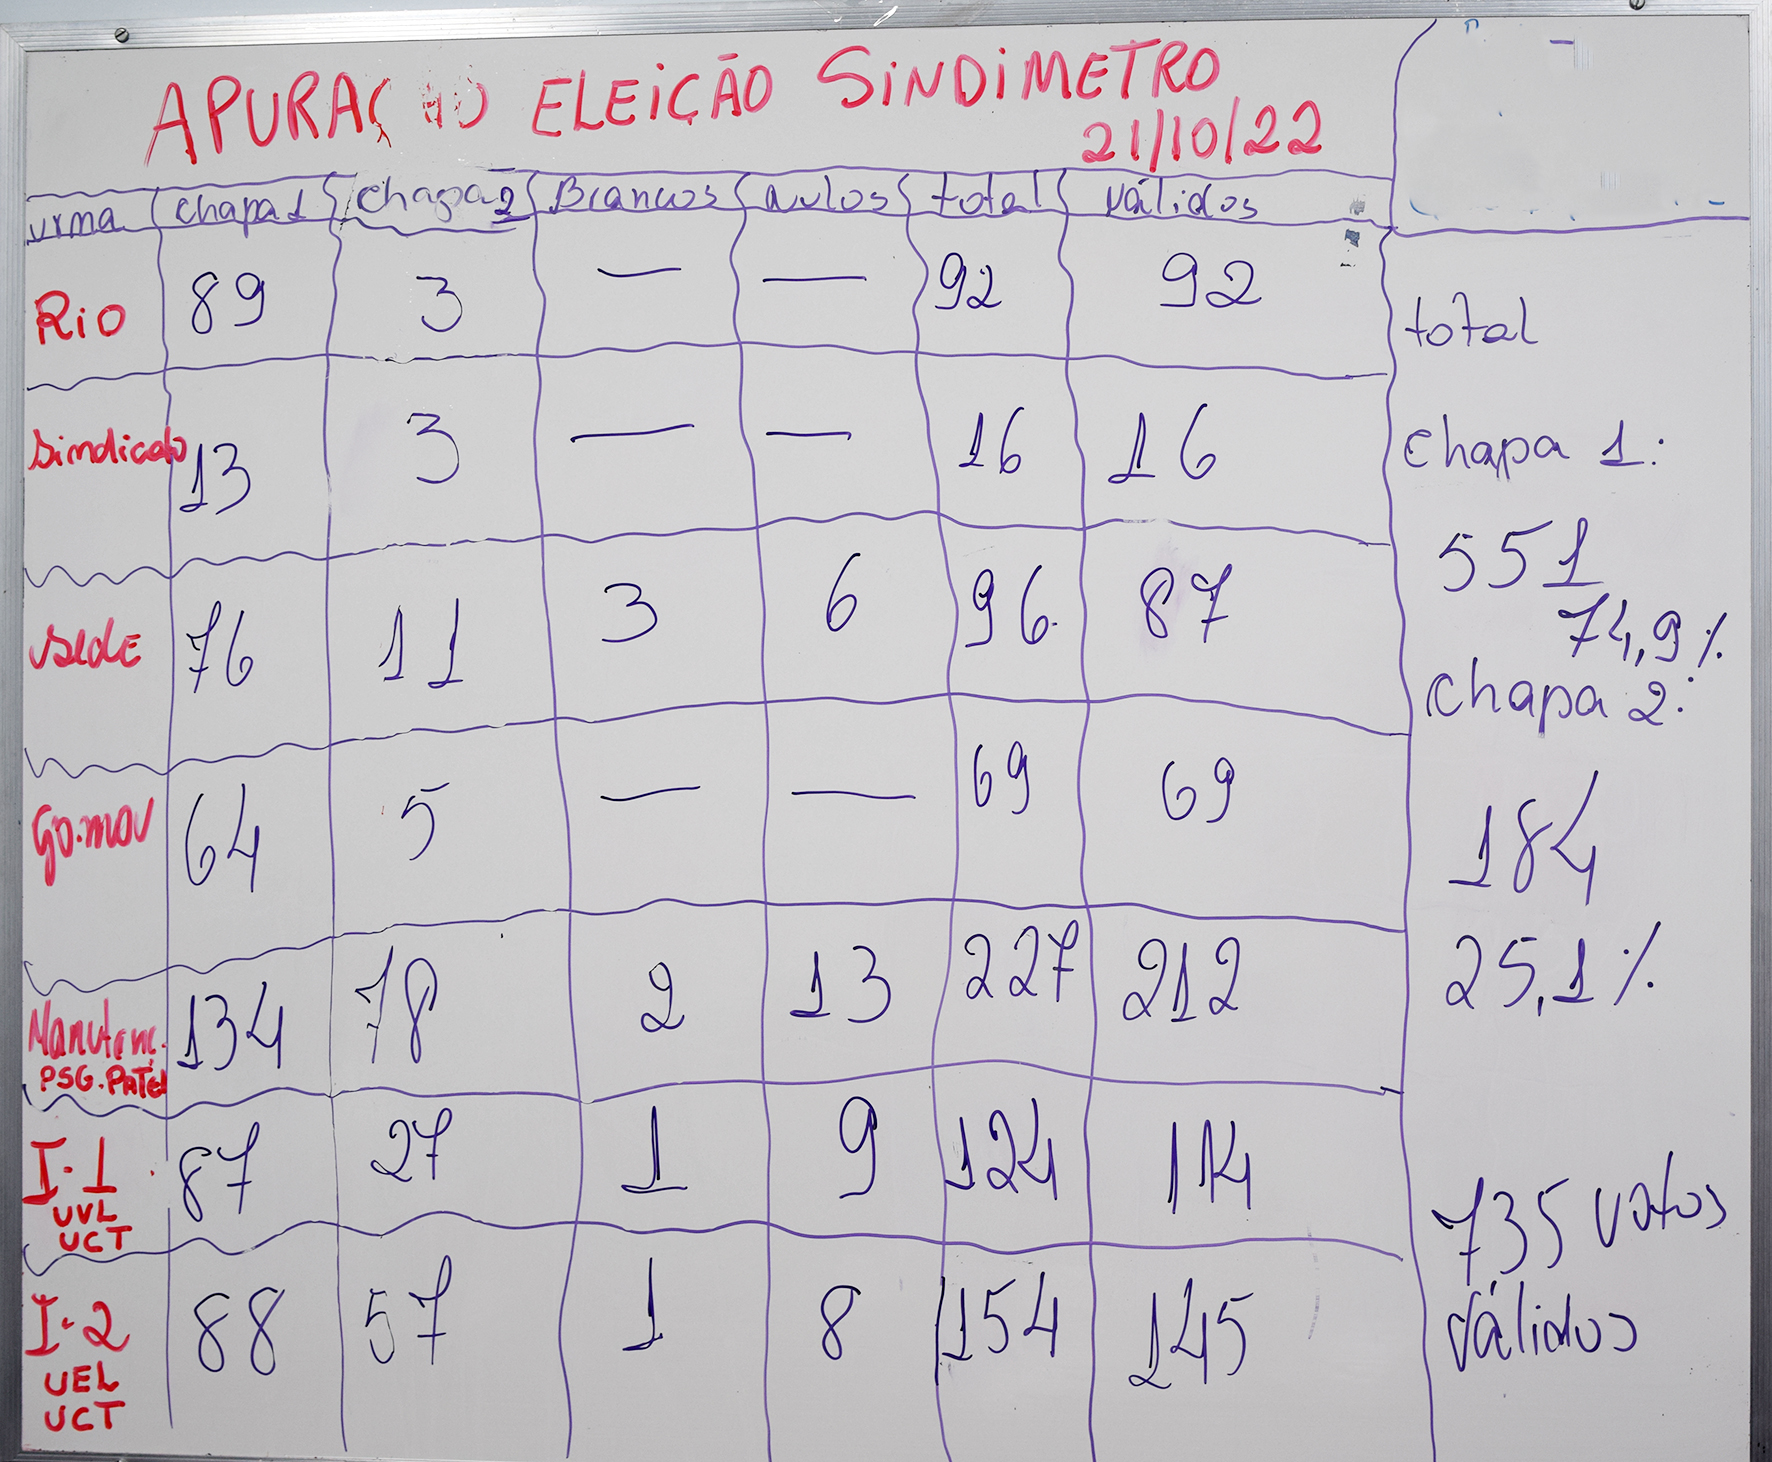 APURAÇÃO ELEIÇÃO SINDIMETRO
21/10/22
urna chapa 1 chapa 2 Brancos nulos total válidos
Rio 89 3 — — 92 92
Sindicato 13 3 — — 16 16
Sede 76 11 3 6 96 87
GO.MOV 64 5 — — 69 69
Manutenç. 134 78 2 13 227 212
PSG.PATEO
I-1 87 27 1 9 124 114
UVL
UCT
I-2 88 57 1 8 154 145
UEL
UCT
total
chapa 1:
551
74,9%
chapa 2:
184
25,1%
735 votos
válidos